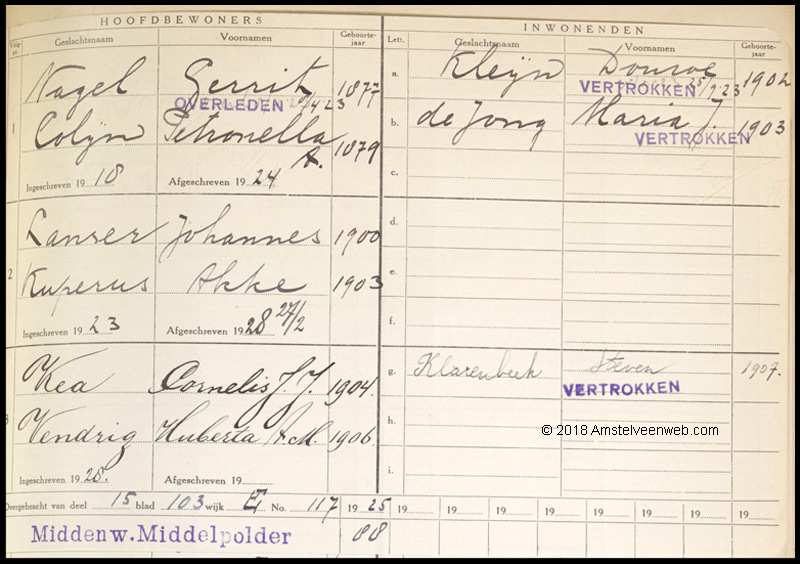 HOOFDBEWONERS
Volg- nr. Geslachtsnaam Voornamen Geboorte- jaar
Nagel Gerrit 1877
OVERLEDEN /4 23
1
Colijn Petronella A. 1879
Ingeschreven 1918 Afgeschreven 1924
Lanser Johannes 1900
2
Kuperus Akke 1903
Ingeschreven 1923 Afgeschreven 1928 27/2
Kea Cornelis J. J. 1904
3
Vendrig Huberta A. M. 1906
Ingeschreven 1928. Afgeschreven 19
INWONENDEN
Lett. Geslachtsnaam Voornamen Geboorte- jaar
a. Kleijn Douwe 1902
VERTROKKEN 25/2 23
b. de Jong Maria J. 1903
VERTROKKEN
c.
d.
e.
f.
g. Klarenbeek Steven 1907.
VERTROKKEN
© 2018 Amstelveenweb.com
i.
Overgebracht van deel 15 blad 103 wijk E No. 117 1925 19 19 19 19 19 19 19 19
Middenw. Middelpolder 88